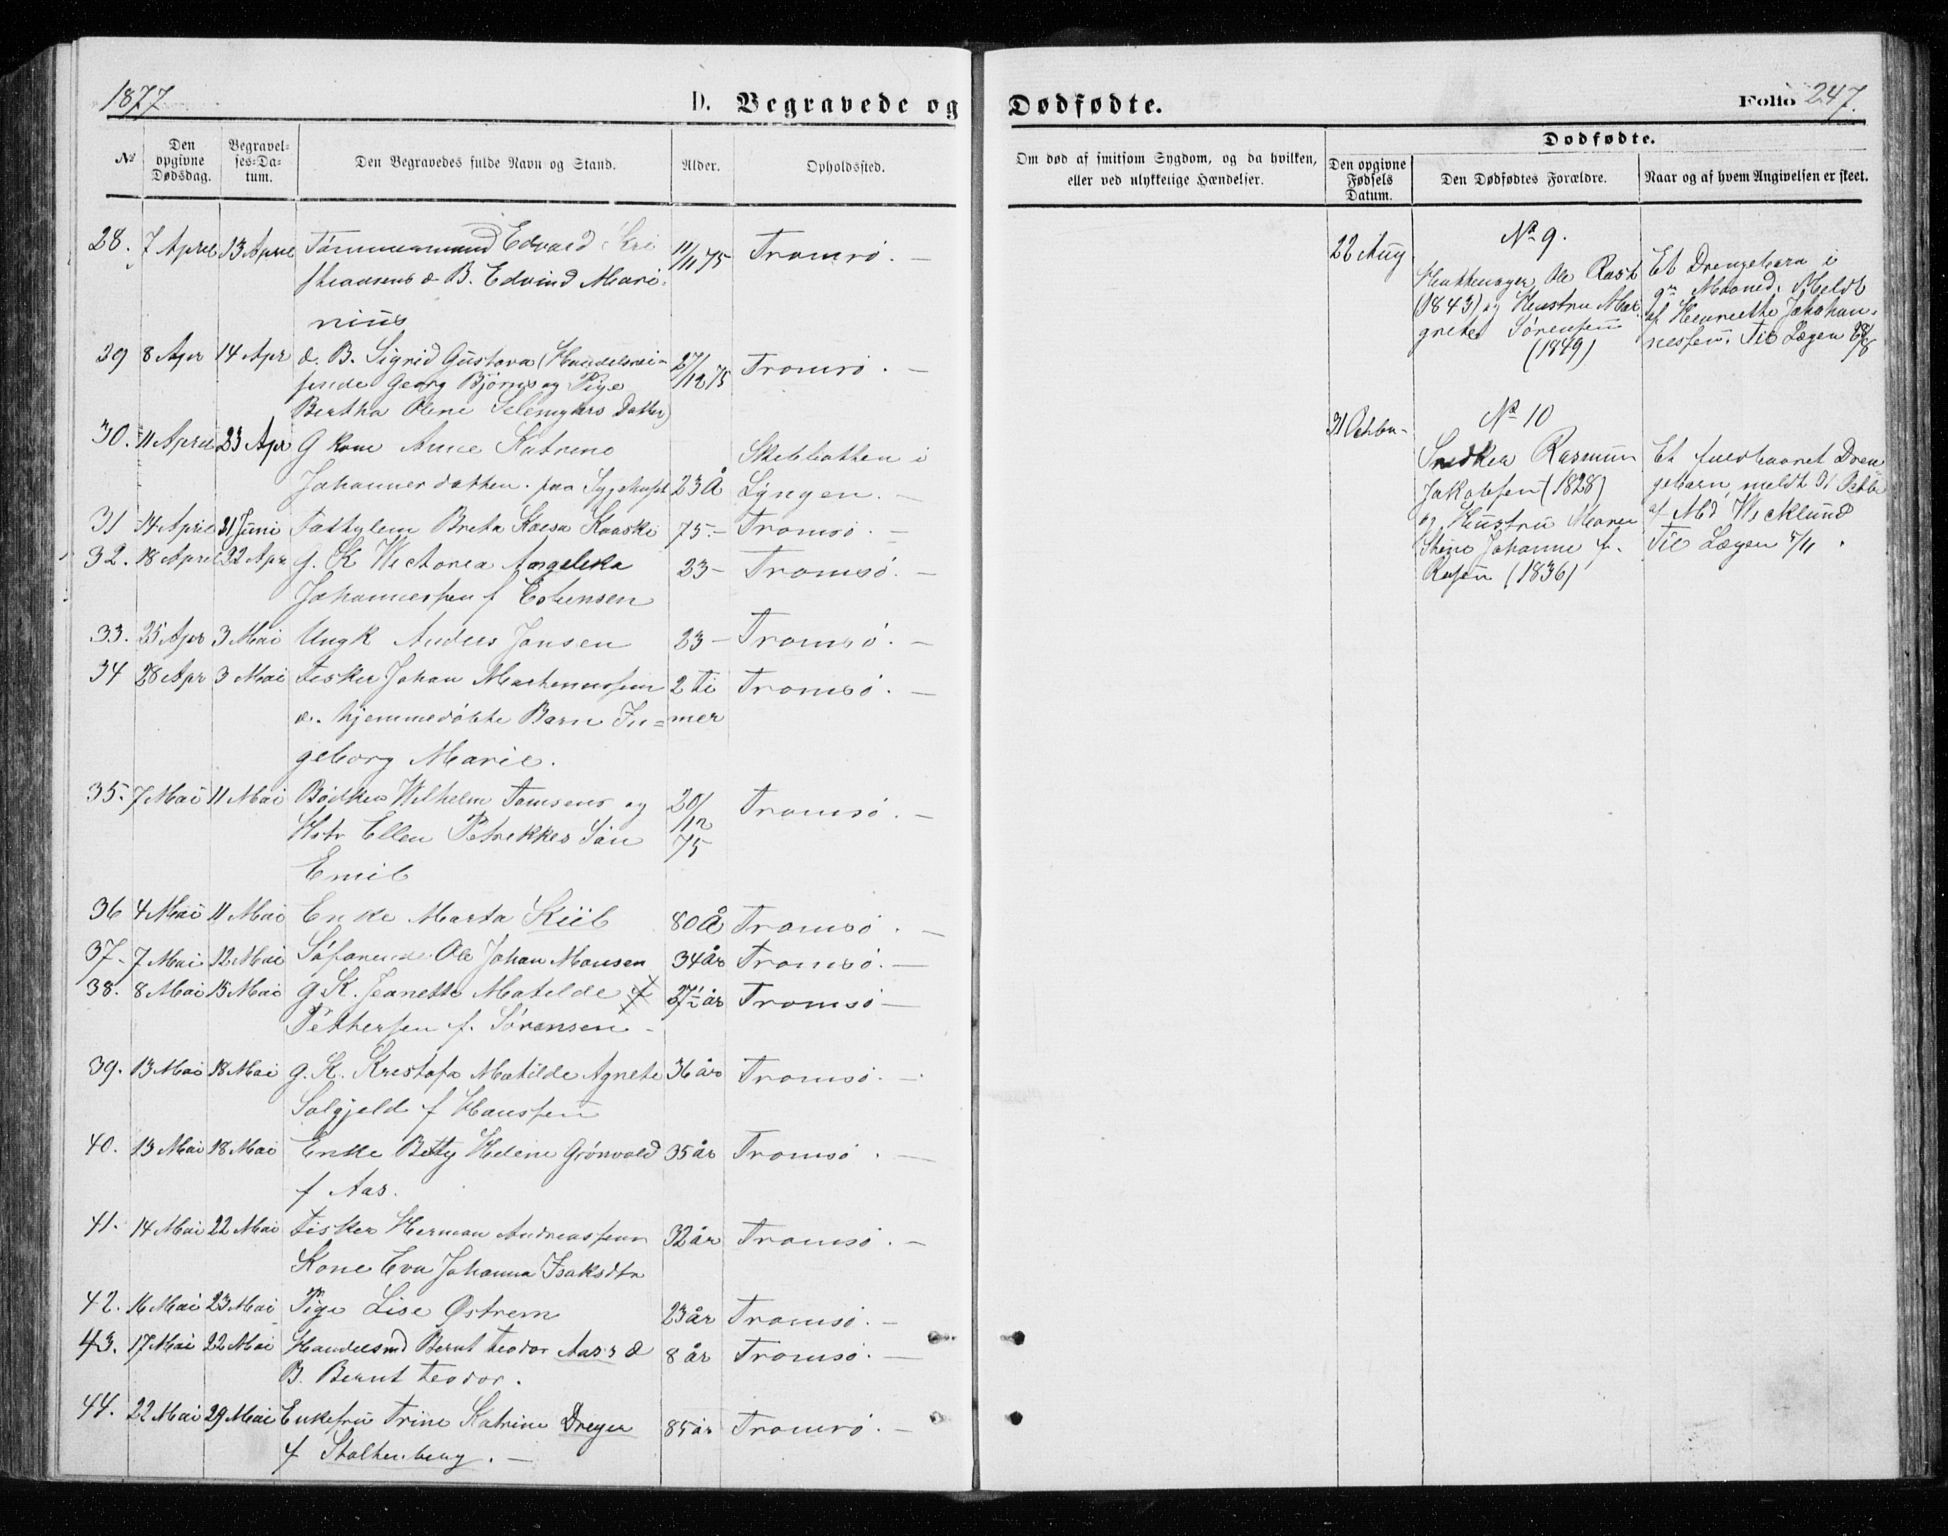 1877
D. Begravede og
№
Den opgivne Dødsdag.
Begravelses-Datum.
Den Begravedes fulde Navn og Stand.
Alder.
Opholdssted.
28. 7 April 13 April Tømmermand Edvard Kri 11/11 75 Tromsø. —
sthiansens d. B. Edvind Mari-
nius
29 8 Apr 14 Apr d. B. Sigrid Gustava (Handelsrei- 27/12 75 Tromsø. —
sende Georg Bjørns og Pige
Bertha Oline Datter)
30. 11 April 23 Apr G kone Anne Katrine Skibbotten i
Johannesdatter. paa Sygehuset 23 Å Lyngen. —
31 14 April 21 Juni Fattiglem Brita Kaisa 75.— Tromsø. —
32. 18 April 22 Apr g. K Victoria Angelika 23— Tromsø. —
Johannessen f Esbensen
33. 25 Apr 3 Mai Ungk Anders Jansen 23— Tromsø. —
34 28 Apr 3 Mai Fisker Johan Marthinussen 2 Ti Tromsø. —
d. hjemmedøbte Barn In= mer
geborg Marie.
35. 7 Mai 11 Mai Bødker Wilhelm Tomsens og 20/ Tromsø. —
Hstr Ellen Petrikkes Søn 12
Emil 75
36 4 Mai 11 Mai Enke Marta Kiil 80 Å Tromsø. —
37. 7 Mai 12 Mai Søfarende Ole Johan Monsen 34 år Tromsø. —
38. 8 Mai 15 Mai g. K. Jeanette Matilde 27½ år Tromsø —
Pettersen f. Sørensen —
39. 13 Mai 18 Mai g. K. Kristofa Matilde Agnete 36 år Tromsø. —
Salgjeld f Hanssen
40. 13 Mai 18 Mai Enke Betty Helene Grønvold 35 år Tromsø. —
f Aas.
41. 14 Mai 22 Mai Fisker Herman Andreassens 32 år Tromsø. —
Kone Eva Johanna Isaksdtr
42. 16 Mai 23 Mai Pige Lise Østrem 23 år Tromsø. —
43. 17 Mai 22 Mai Handelsmd Bernt Teodor Aas's d 8 år Tromsø. —
B. Bernt Teodor.
44. 22 Mai 29 Mai Enkefru Trine Katrine Dreyer 85 år Tromsø. —
f Stoltenberg. —
Dødfødte.
Folio 247.
Om død af smitsom Sygdom, og da hvilken,
eller ved ulykkelige Hændelser.
Dødfødte.
Den opgivne Fødsels Datum.
Den Dødfødtes Forældre.
Naar og af hvem Angivelsen er skeet.
№ 9.
22 Aug Ole Rask Et Drengebarn i
(1843) og Hustru Mar- 9de Maaned. Meldt
grete Sørensen af Henriette Johan-
(1849) nessen. Til Lægen 28/8
№ 10
31 Octbr- Snedker Rasmus Et fuldbaaret Dren
Jakobsen (1828) gebarn, meldt 31 Octbr
og Hustru Maren af Md Wicklund
Stine Johanne f. Til Lægen 5/11.
(1836)